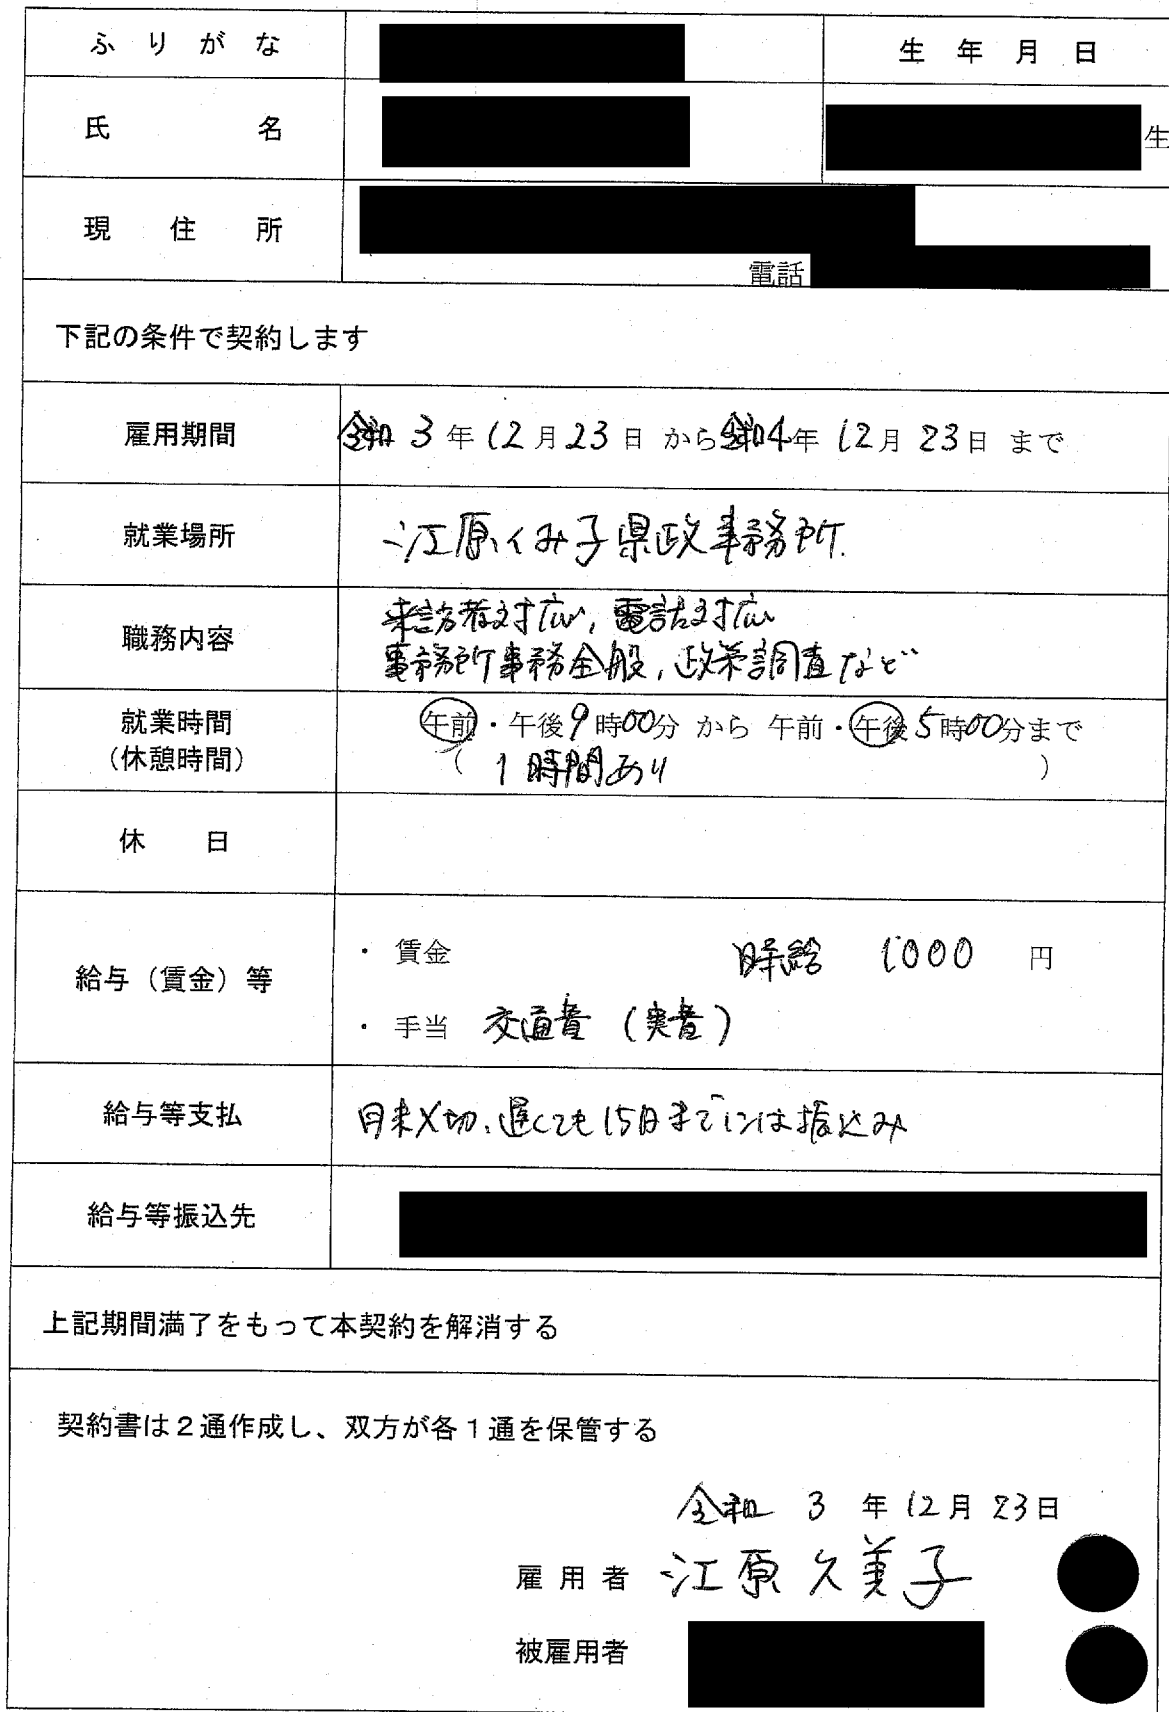 ふりがな
生年月日
氏名
生
現住所
電話
下記の条件で契約します
雇用期間 令和3年12月23日から令和4年12月23日まで
就業場所 江原くみ子県政事務所.
職務内容 来訪者対応、電話対応
事務所事務全般、政策調査など
就業時間 午前・午後9時00分から午前・午後5時00分まで
(休憩時間) (1時間あり)
休日
給与(賃金)等
・賃金 時給 1000 円
・手当 交通費(実費)
給与等支払 月末〆切、遅くても15日までには振込み
給与等振込先
上記期間満了をもって本契約を解消する
契約書は2通作成し、双方が各1通を保管する
令和3年12月23日
雇用者 江原久美子
被雇用者